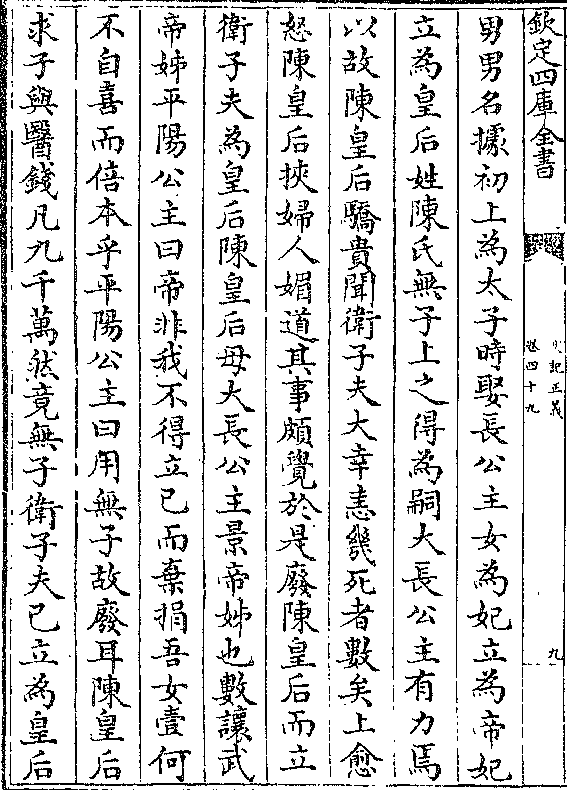 欽定四庫全書
史記正義
卷四十九
九
男男名據初上為太子時娶長公主女為妃立為帝妃
立為皇后姓陳氏無子上之得為嗣大長公主有力焉
以故陳皇后驕貴聞衛子夫大幸恚幾死者數矣上愈
怒陳皇后挾婦人媚道其事頗覺於是廢陳皇后而立
衛子夫為皇后陳皇后母大長公主景帝姊也數讓武
帝姊平陽公主曰帝非我不得立已而棄捐吾女壹何
不自喜而倍本乎平陽公主曰用無子故廢耳陳皇后
求子與醫錢凡九千萬然竟無子衛子夫已立為皇后